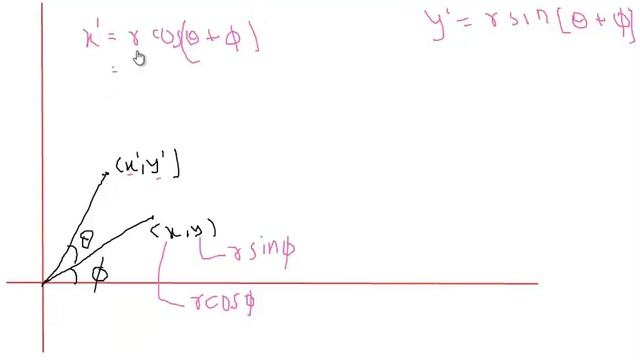 x' = r cos(θ + ϕ)
y' = r sin[θ + ϕ]
=
(x', y']
θ
(x, y)
ϕ
r sinϕ
r cosϕ